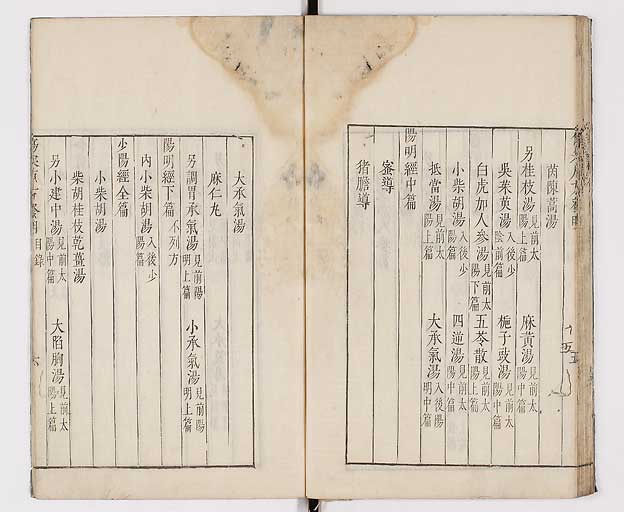 茵陳蒿湯
另桂枝湯見前太陽上篇 麻黃湯見前太陽中篇
吳茱萸湯入後少陰前篇 梔子豉湯見前太陽中篇
白虎加人參湯見前太陽下篇 五苓散見前太陽上篇
小柴胡湯入後少陽篇 四逆湯見前太陽中篇
抵當湯見前太陽上篇 大承氣湯入後陽明中篇
陽明經中篇
蜜導
猪膽導
大承氣湯
麻仁丸
另調胃承氣湯見前陽明上篇 小承氣湯見前陽明上篇
陽明經下篇不列方
內小柴胡湯入後少陽篇
少陽經全篇
小柴胡湯
柴胡桂枝乾薑湯
另小建中湯見前太陽中篇 大陷胸湯見前太陽上篇
目錄 六